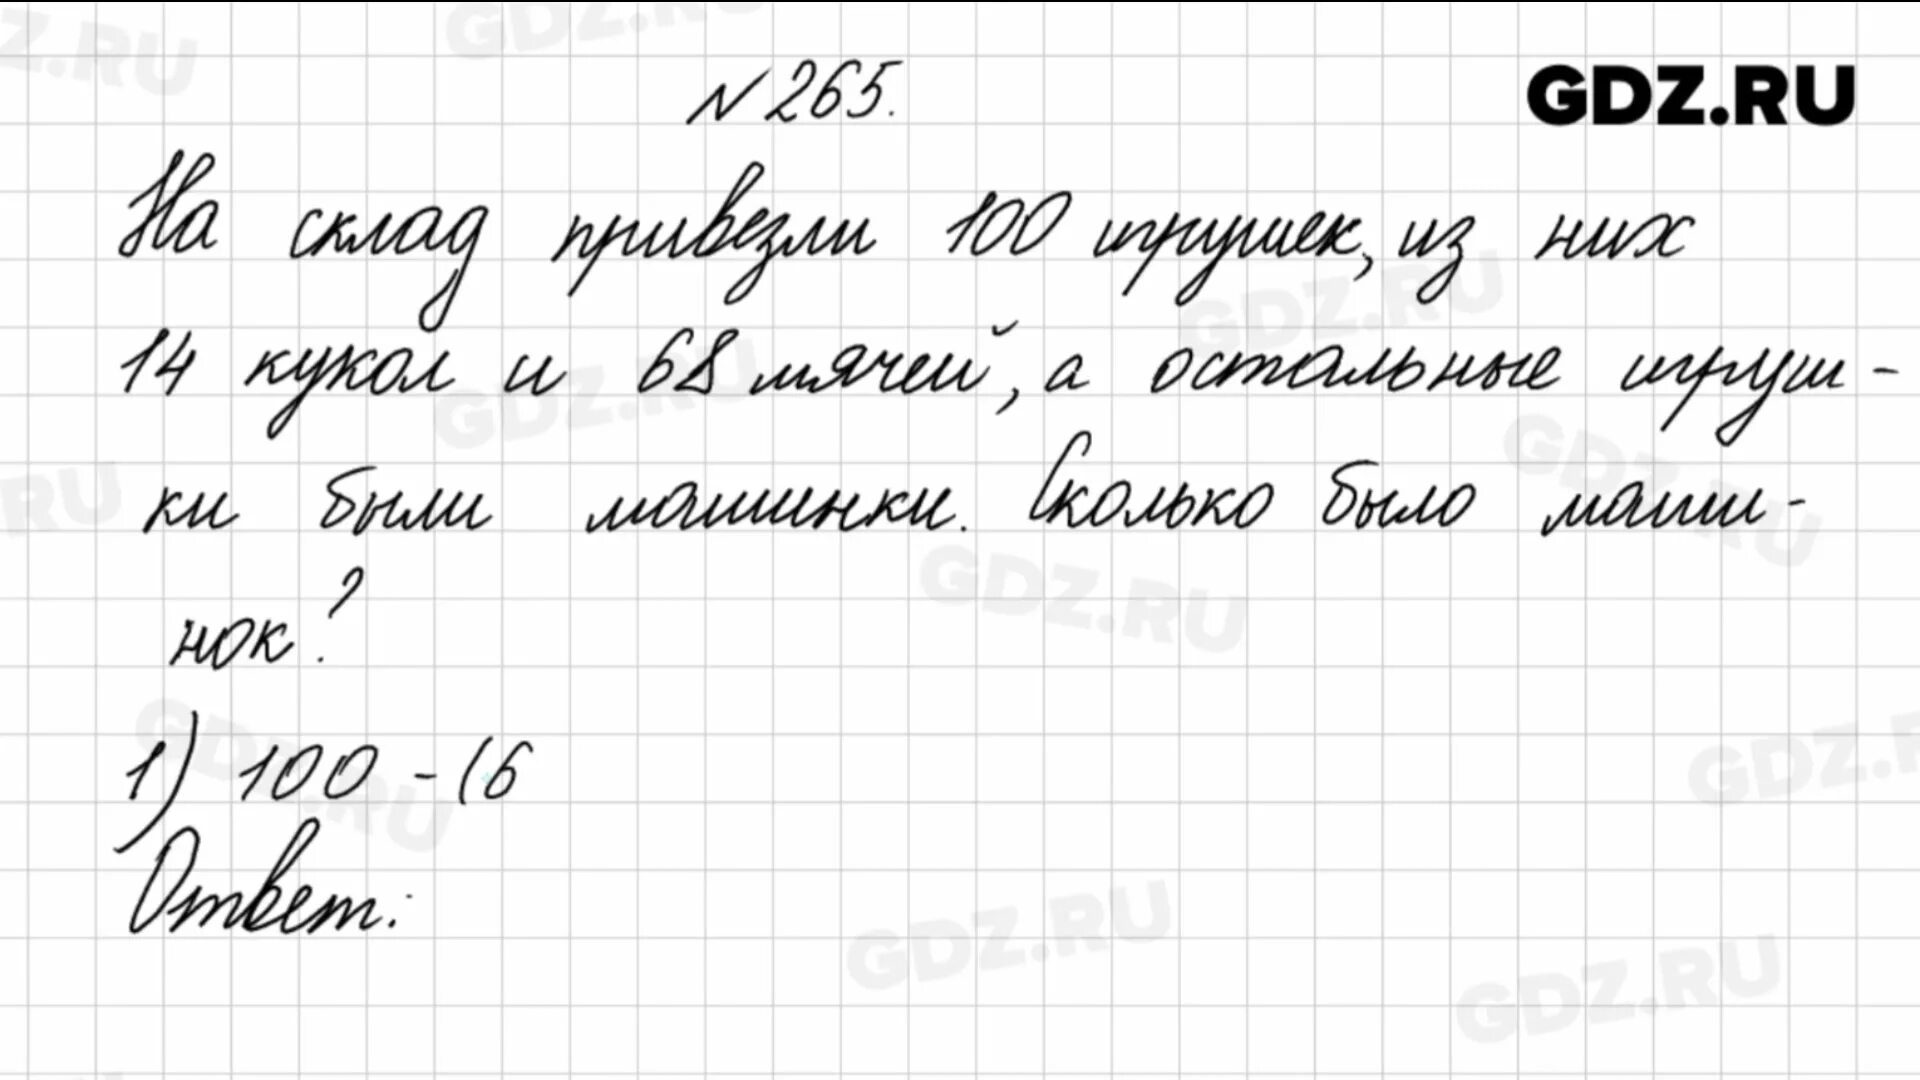 GDZ.RU
№ 265.
На склад привезли 100 игрушек, из них
14 кукол и 68 мячей, а остальные игруш-
ки были машинки. Сколько было маши-
нок?
1) 100 - (6
Ответ: